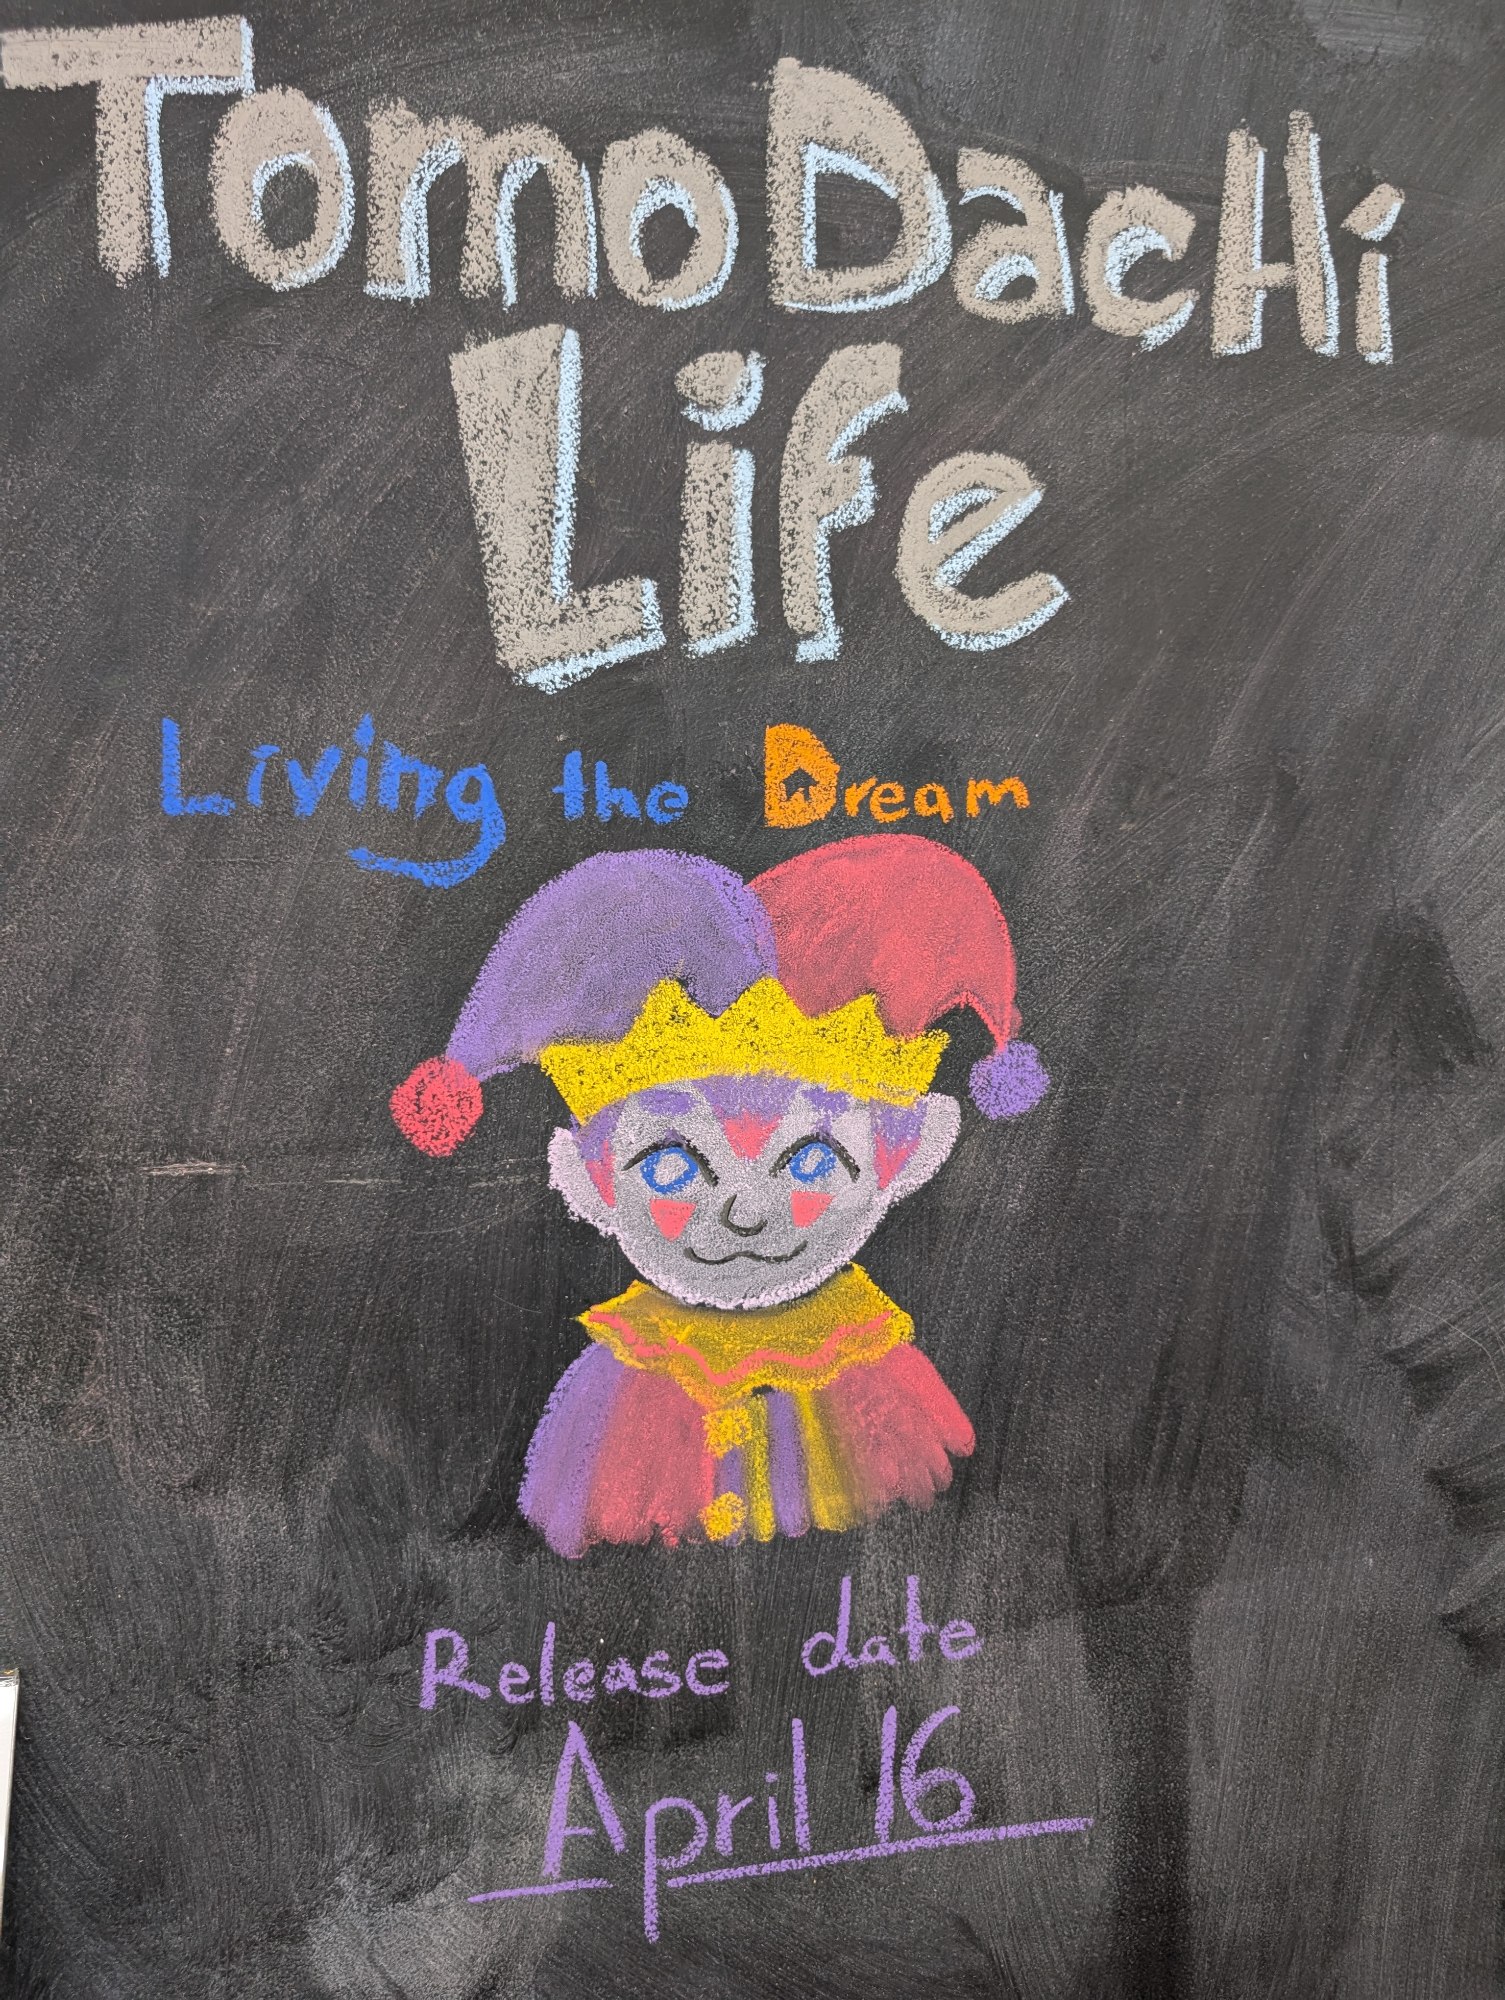 TomoDacHi
Life
Living the Dream
Release date
April 16